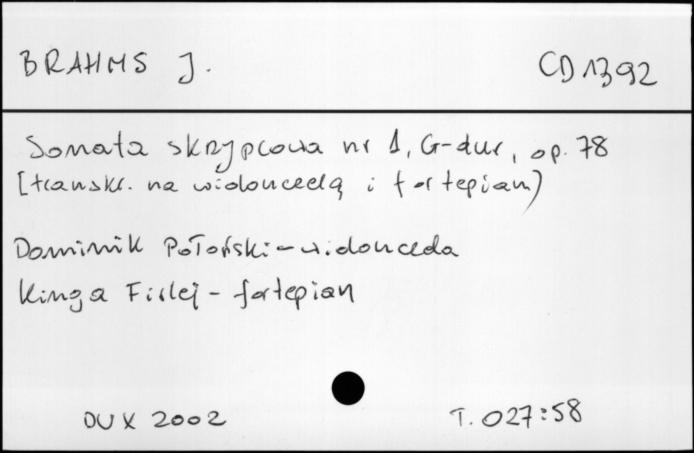 BRAHMS J.
CD 1392
Sonata skrzypcowa nr 1, G-dur, op. 78
[transkr. na wiolonczelę i fortepian)
Dominik Połoński - wiolonczela
Kinga Firlej - fortepian
DUX 2002
T. 027:58